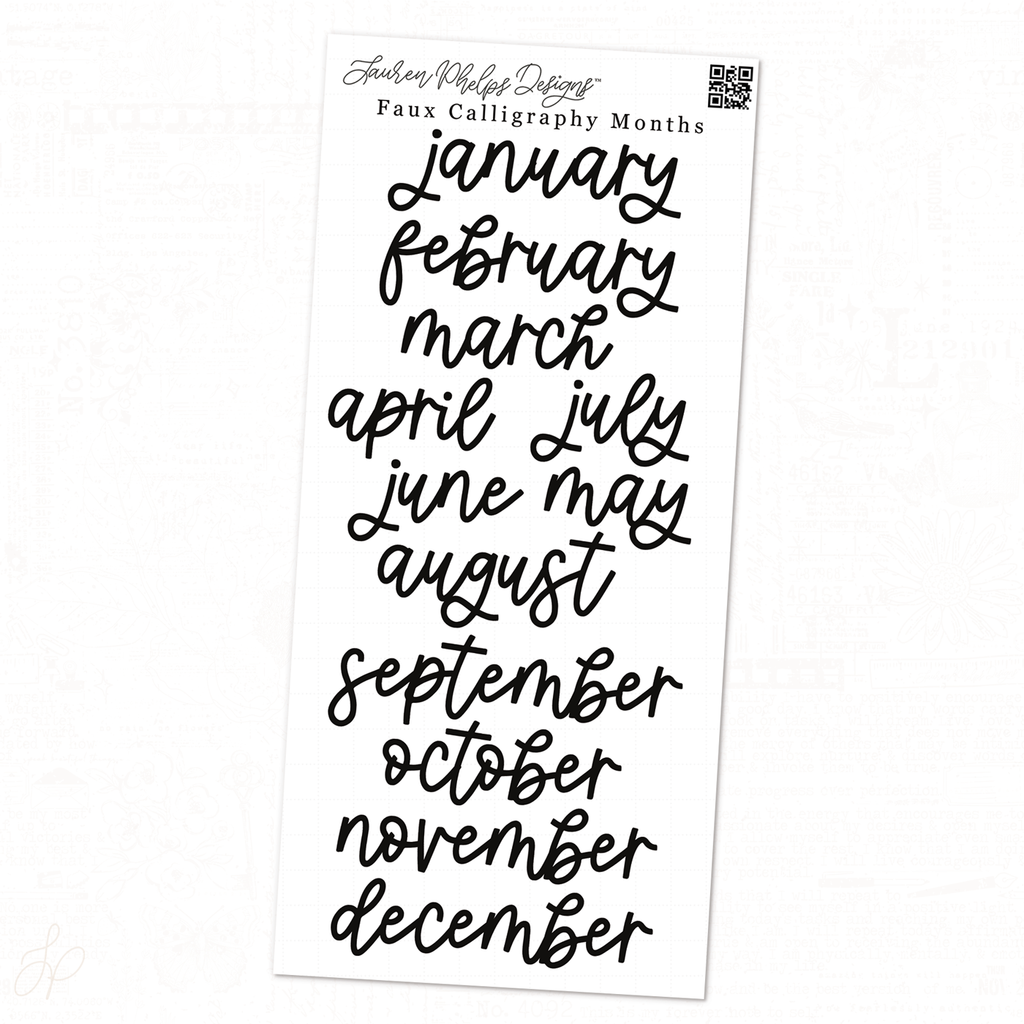 Lauren Phelps Designs™
Faux Calligraphy Months
january
february
march
april july
june may
august
september
october
november
december
No. 3810
SINGLE
212901
L
46163